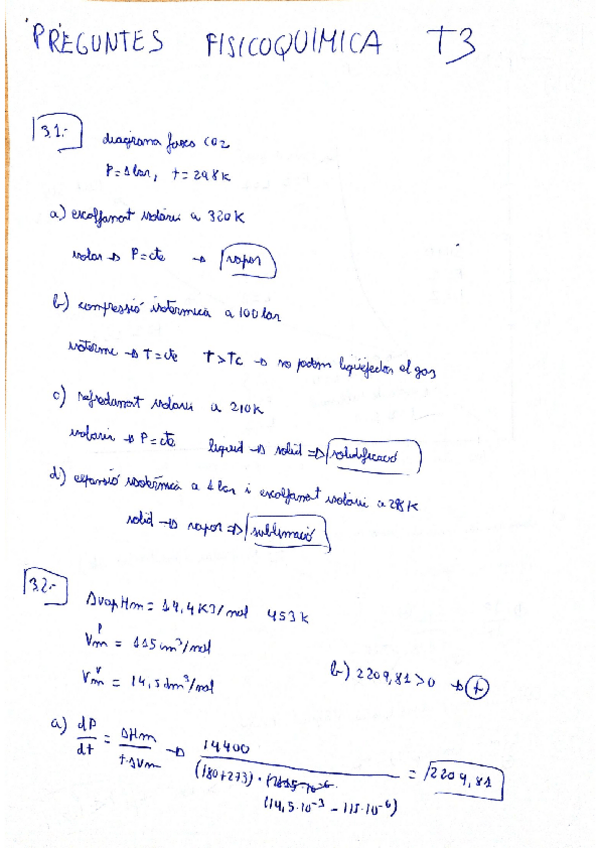 PREGUNTES FISICOQUIMICA T3
3.1.- diagrama fases CO2
P=1bar, t=298K
a) escalfament isobàric a 320K
isobar → P=cte → vapor
b) compressió isotèrmica a 100bar
isoterme → T=cte T>Tc → no podem liquefactar el gas
c) refredament isobàric a 210K
isobaric → P=cte liquid → solid ⇒ solidificació
d) expansió isotèrmica a 1bar i escalfament isobàric a 298K
solid → vapor ⇒ sublimació
3.2.- ΔvapHm = 14,4KJ/mol 453K
Vm^l = 115cm³/mol
Vm^v = 14,5dm³/mol
b) 2209,81>0 → +
a) dP/dt = ΔHm/t·ΔVm → 14400/(180+273)·(14,5·10⁻³ - 115·10⁻⁶) = 2209,81